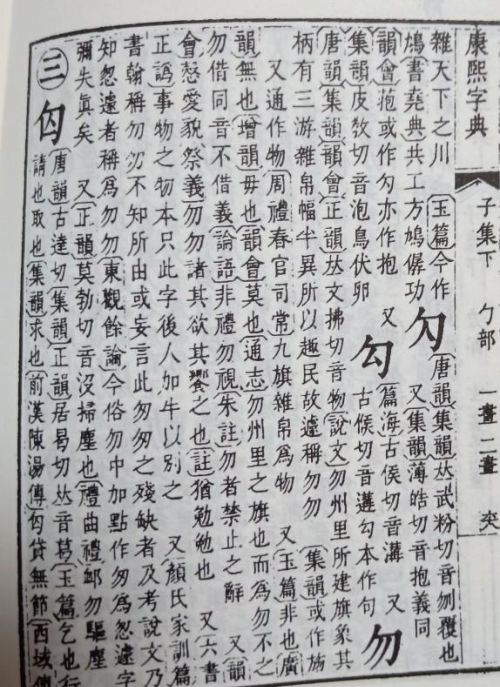 康熙字典 子集下 勹部 一畫二畫
雜天下之川 玉篇今作 勽 唐韻集韻𠀤武粉切音刎覆也
鳩書堯典共工方鳩僝功 又集韻薄皓切音抱義同
韻會菢或作勾亦作抱 又 勾 篇海古侯切音溝 又
集韻皮敎切音泡鳥伏卵 古候切音遘勾本作句 勿
唐韻集韻韻會正韻𠀤文拂切音物說文勿州里所建旗象其
柄有三游雜帛幅半異所以趣民故遽稱勿勿 集韻或作
又通作物周禮春官司常九旗雜帛爲物 又玉篇非也廣
韻無也增韻毋也韻會莫也通志勿州里之旗也而爲勿不之
勿借同音不借義論語非禮勿視朱註勿者禁止之辭 又韻
會愨愛貌祭義勿勿諸其欲其饗之也註猶勉勉也 又六書
正譌事物之物本只此字後人加牛以別之 又顏氏家訓篇
書翰稱勿勿不知所由或妄言此匆匆之殘缺者及考說文乃
知怱遽者稱爲勿勿東觀餘論今俗勿中加點作匆爲怱遽字
彌失眞矣 又正韻莫勃切音沒掃塵也禮曲禮卹勿驅塵
三 匃 唐韻古達切集韻正韻居曷切𠀤音葛玉篇乞也行
請也取也集韻求也前漢陳湯傳匃貸無節西域傳